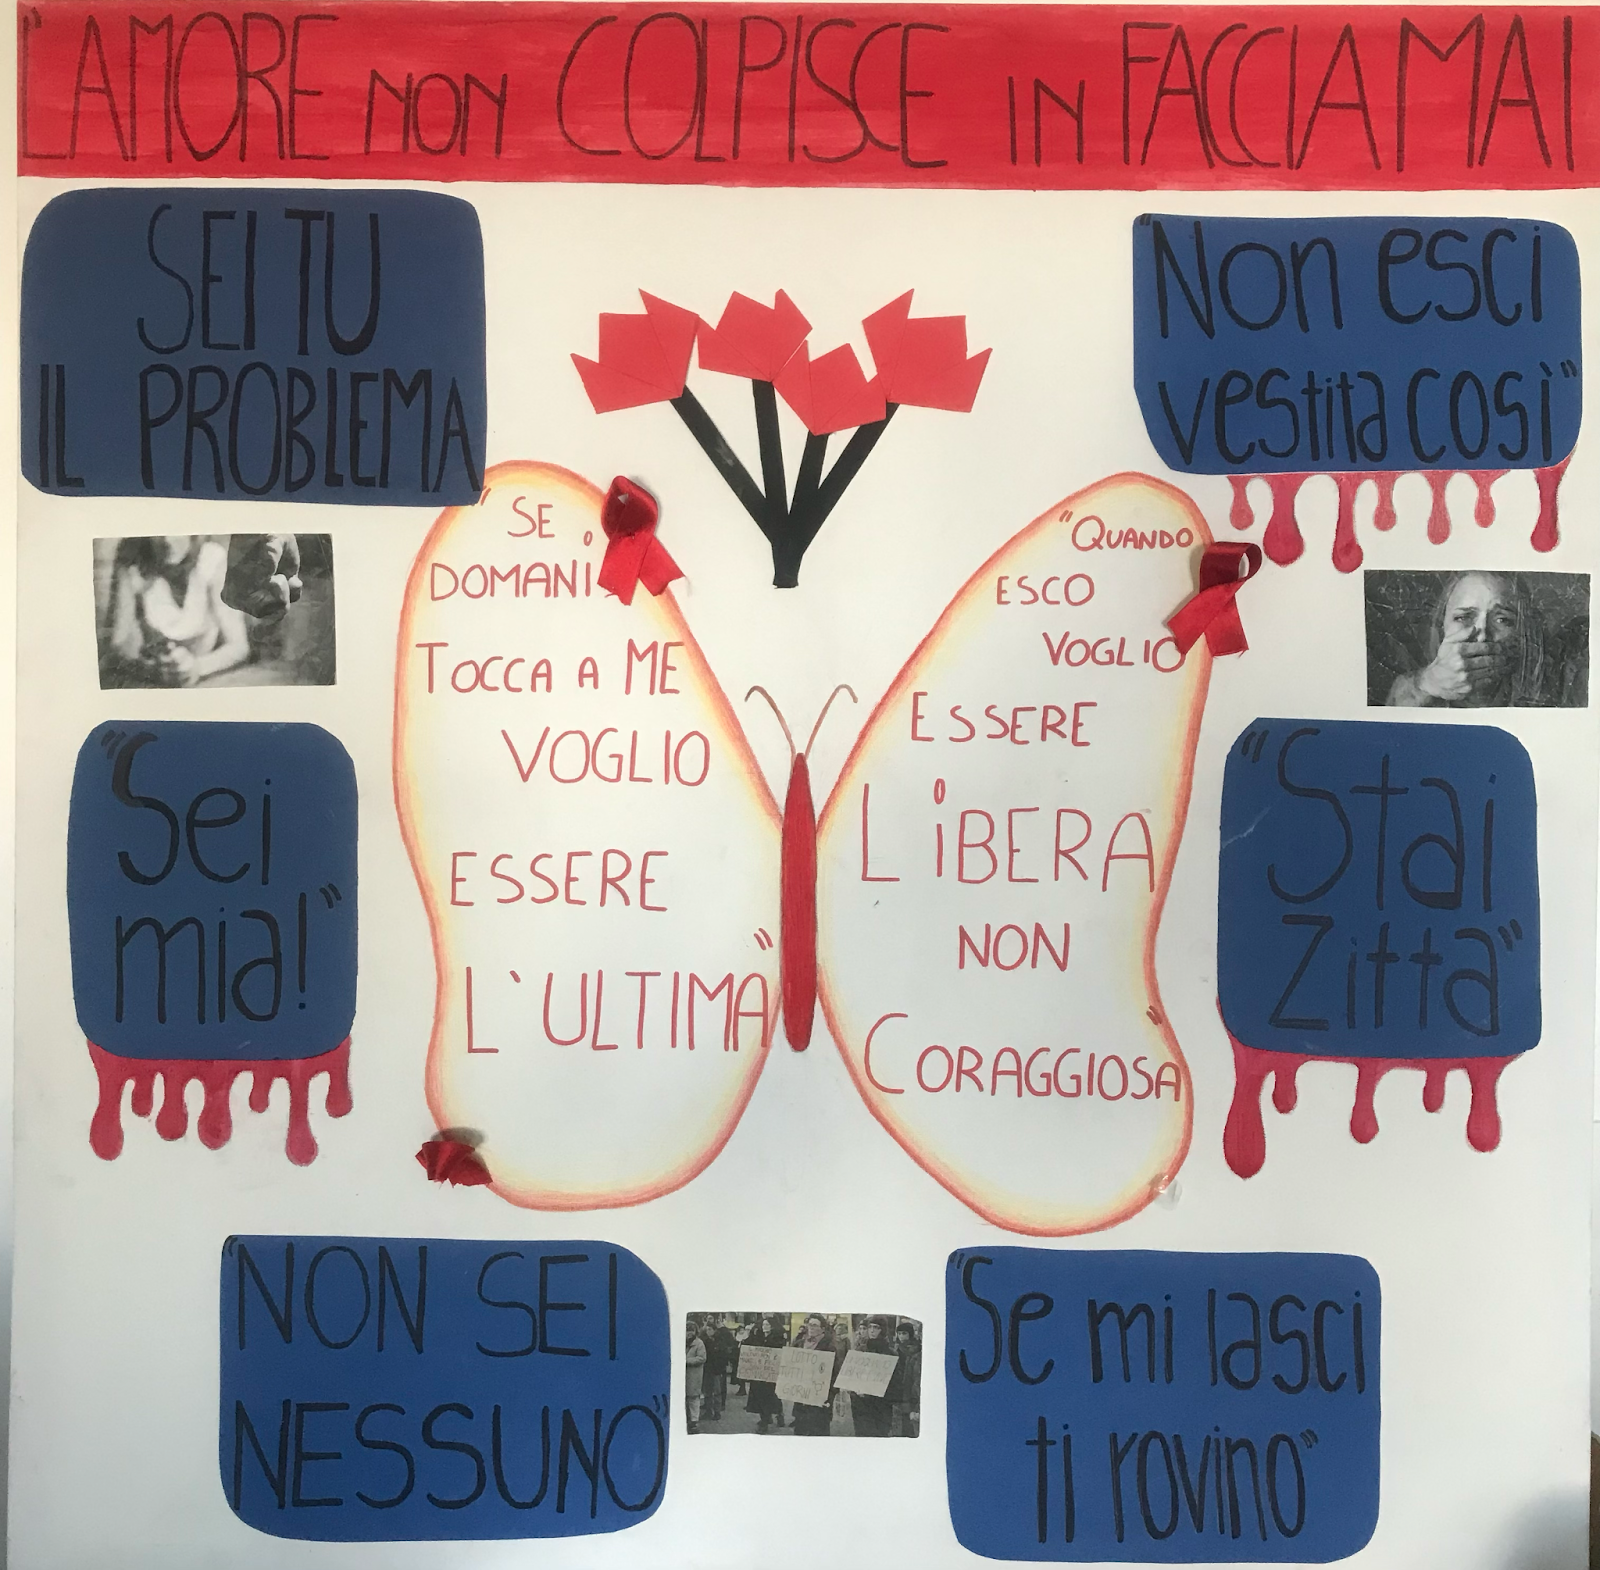 L'AMORE NON COLPISCE IN FACCIA MAI
SEI TU
IL PROBLEMA
"Non esci
vestita così"
"SE
DOMANi
TOCCA A ME
VOGLIO
ESSERE
L'ULTIMA"
"QUANDO
ESCO
VOGLIO
ESSERE
LiBERA
NON
CORAGGIOSA"
"Sei
mia!"
"Stai
Zitta"
"NON SEI
NESSUNO"
LOTTO
TUTTI I
GIORNI
"Se mi lasci
ti rovino"